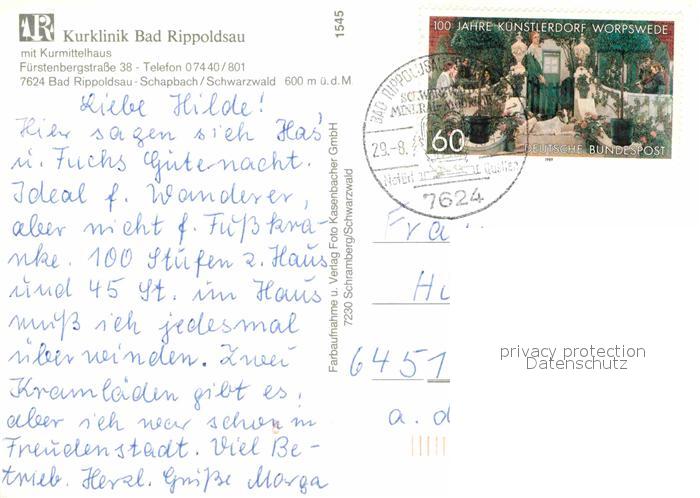 Kurklinik Bad Rippoldsau
mit Kurmittelhaus
Fürstenbergstraße 38 - Telefon 07440/801
7624 Bad Rippoldsau-Schapbach/Schwarzwald 600 m ü.d.M.
1545
Liebe Hilde!
Hier sagen sich Has
u. Fuchs Gutenacht.
Ideal f. Wanderer,
aber nicht f. Fußkra-
nke. 100 Stufen z. Haus
und 45 St. im Haus
muß ich jedesmal
überwinden. Zwei
Kramläden gibt es,
aber ich war schon in
Freudenstadt. Viel Be-
trieb. Herzl. Grüße Marga
Farbaufnahme u. Verlag Foto Kasenbacher GmbH
7230 Schramberg/Schwarzwald
100 JAHRE KÜNSTLERDORF WORPSWEDE
60
DEUTSCHE BUNDESPOST
1989
BAD RIPPOLDSA
29.-8.
7624
Fra
Hi
6451
a. d
privacy protection
Datenschutz